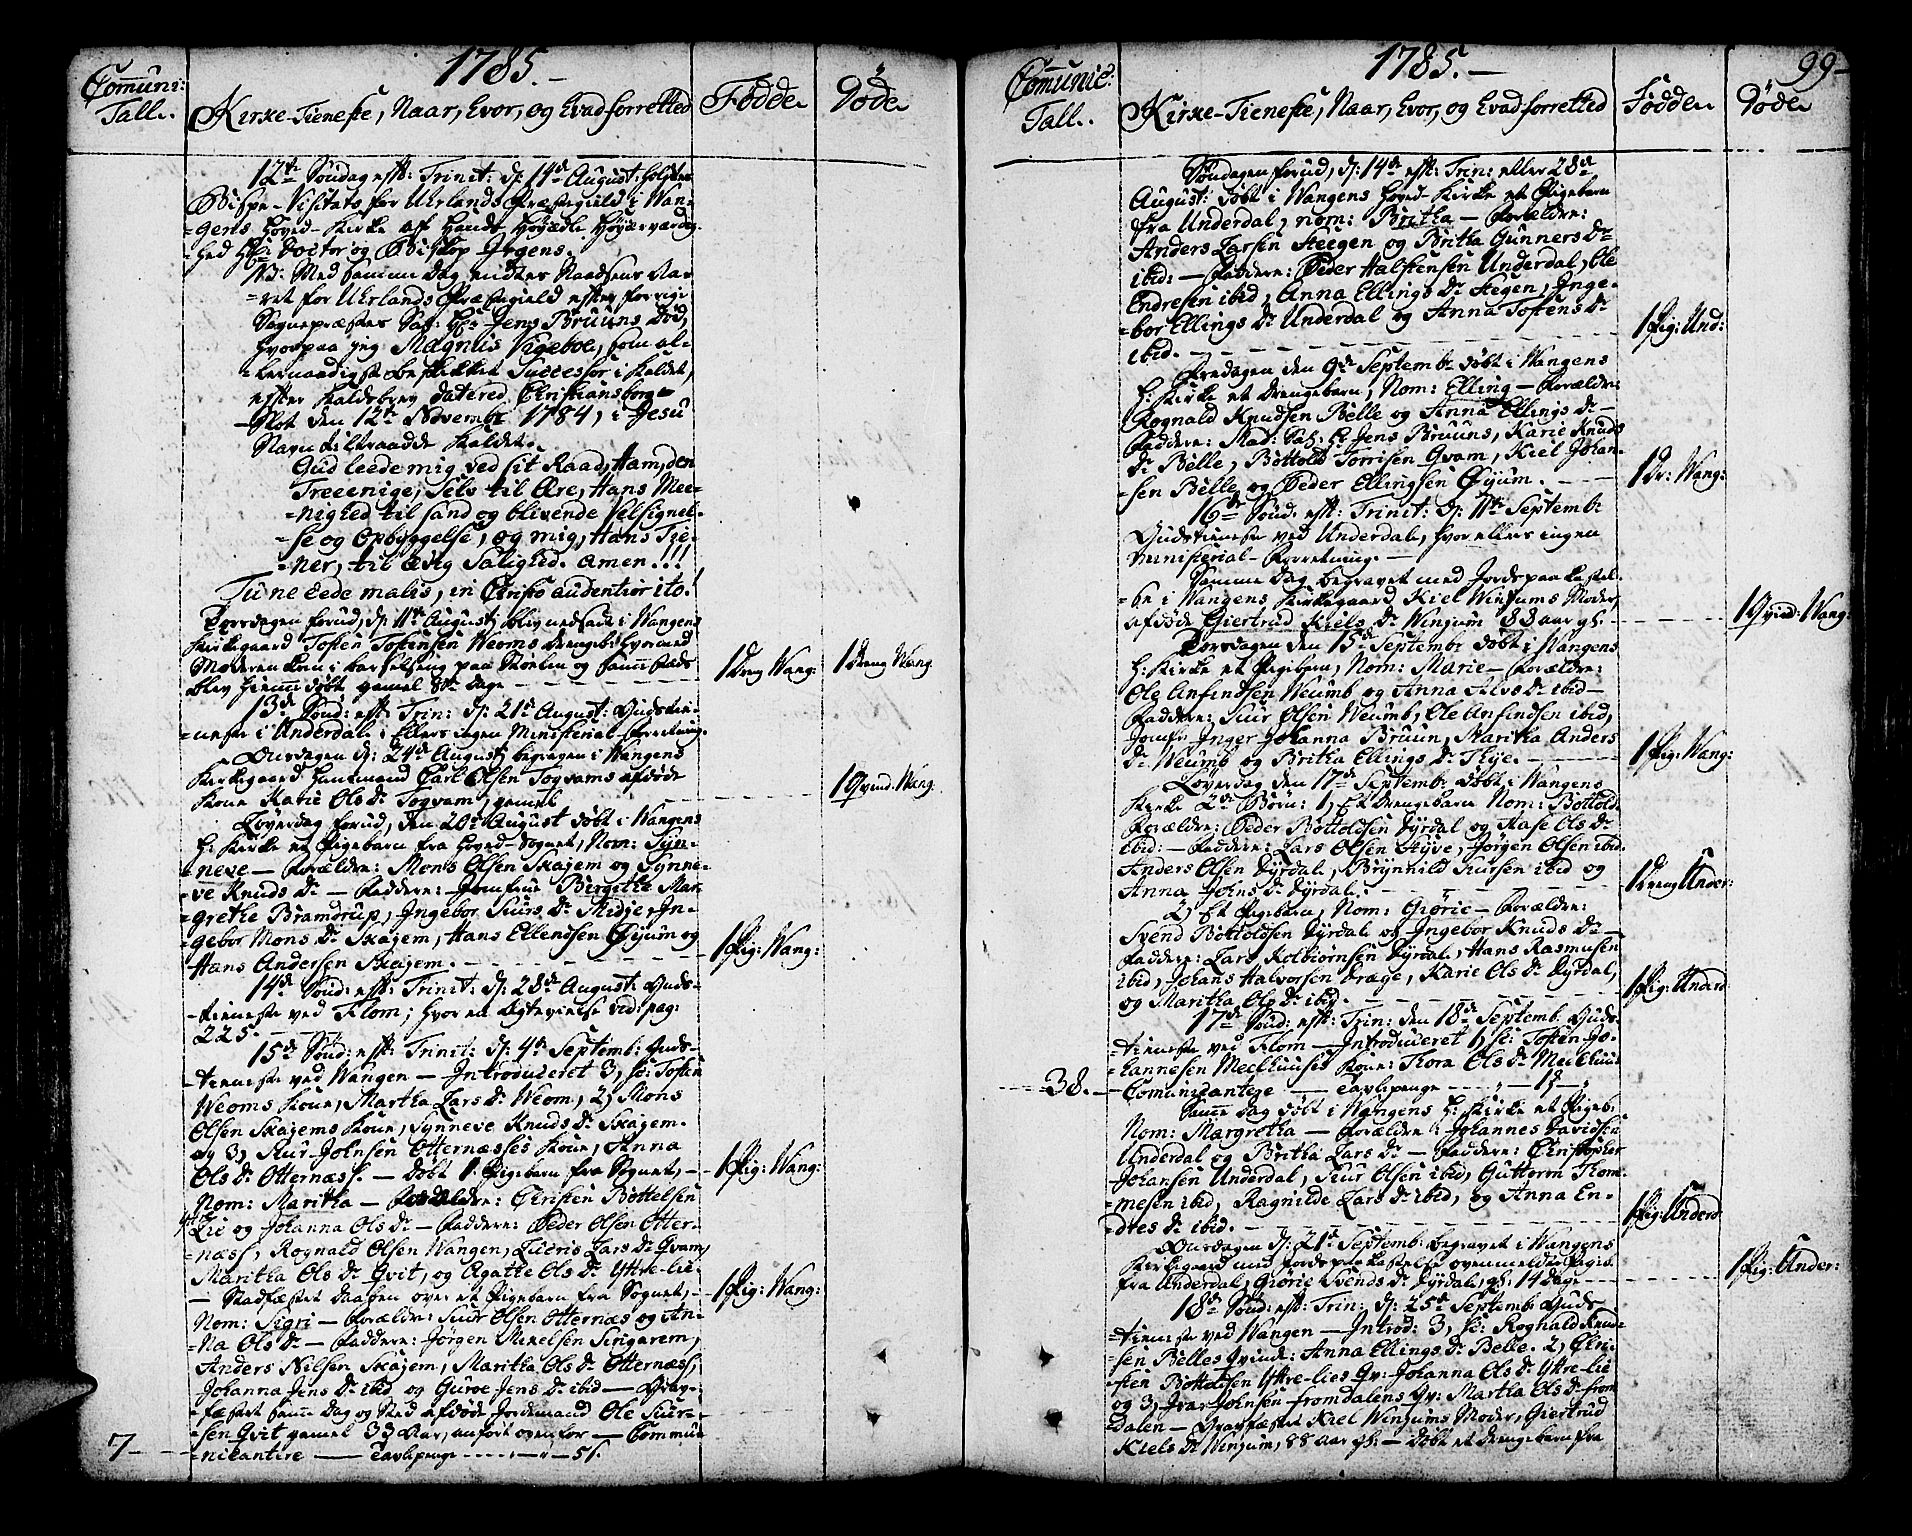 1785.
Comuni:
Tall.
Kirke-Tieneste, Naar, Hvor, og Hvad forretted
Fødde
Døde
12te Søndag eft: Trinit: d: 14de August: holdtes
Bispe-Visitats for Uhrlands Præstegield i Wan-
=gens Hoved-Kirke af Hands Høyædle Høyærværdig-
hed Hr: Doctor og Biskop Irgens.
NB: Med samme Dag endtes Naadsens Aa-
ret for Uhrlands Præstegield efter forrige
Sognepræstes Sal: Hr: Jens Bruuns Død,
hvorpaa jeg Magnus Vigeboe, som al-
=lernaadigst beskikket Successor i Kaldet,
efter Kaldsbrev datered Christiansborg
Slot den 12te Novembr 1784, i Jesu
Navn tiltraadde Kaldet.
Gud leede mig ved sit Raad, Ham, den
Treeenige, Selv til Ære, Hans Mee-
=nighed til sand og blivende Velsignel-
=se og Opbyggelse, og mig, Hans Tie-
=ner, til ævig Salighed. Amen!!!
Tu ne cede malis, in Christo audentior ito!
Torsdagen forud, d: 11te August, blev nedsadt i Wangens
Kirkegaard Tosten Tostensen Weoms Drengeb: hvormed
Moderen kom i barselseng paa Stølen og samme Steds
blev hiemme døbt gamel 8te Dage
1 Dreng Wang:
1 Dreng Wang.
13de Sønd: eft: Trin: d: 21de August: Gudstie-
=neste i Underdal: Ellers ingen Ministerial-Forretning.
Onsdagen d: 24de August: begraven i Wangens
Kirkegaard Huusmand Carl Olsen Togvams afdøde
Kone Karie Ols Dr Togvam, gamel
1 Qvind. Wang.
Løverdag forud, den 20de August døbt i Wangens
H: Kirke et Pigebarn fra Hoved-Sognet, Nom: Syn-
=neve — Forældre: Mons Olsen Skajem og Synne-
=ve Knuds Dr — Faddere: Jomfrue Birgitha Mar-
=grethe Bramdrup, Ingebor Siurs Dr Midje, In-
=gebor Mons Dr Skajem, Hans Ellendsen Øyum og
Hans Andersen Skajem.
1 Pig: Wang:
14de Sønd: eft: Trinit: d: 28de August: Guds-
-tieneste ved Flom; hvor en Ægtevielse vid: pag:
225.
15de Sønd: eft: Trinit: d: 4de Septemb: Guds-
-tieneste ved Wangen — Introduceret 3, sc: Tosten
Weoms Kone, Martha Lars Dr Weom, 2) Mons
Olsen Skajems Kone, Synneve Knuds Dr Skajem.
og 3, Siur Johnsen Otternæsses Kone, Anna
Ols Dr Otternæss. — Døbt 1. Pigebarn fra Sognet, —
1 Pig: Wang:
Nom: Maritha — Forældre: Christen Bottelsen
Lie og Johanna Ols Dr — Faddere: Peder Olsen Otter-
=næss, Rognald Olsen Wangen, Lucris Lars Dr Qvam,
Maritha Ols Dr Qvit, og Agathe Ols Dr Yttre-lie
— Stadfæstet Daaben over et Pigebarn fra Sognet, —
1 Pig: Wang:
Nom: Sigri — Forældre: Siur Olsen Otternæs og An-
=na Ols Dr — Faddere: Jørgen Mikelsen Skigarem,
Anders Nilsen Skajem, Maritha Ols Dr Otternæss,
Johanna Jens Dr ibid og Guroe Jens Dr ibid — Grav-
=fæstet samme Dag og Sted afdøde Jordemand Ole Siur-
sen Qvit gamel 33 Aar, anført ovenfor — Commu-
7 —
=nicantere — Tavlepenge — 5 ſ.
1785.
99
Comunic:
Tall.
Kirke-Tieneste, Naar, Hvor, og Hvad forretted
Fødde
Døde
Søndagen forud, d: 14de eft: Trin: eller 28de
August: døbt i Wangens Hoved-Kirke et Pigebarn
fra Underdal, nom: Britha — Forældre:
Anders Larsen Steegen og Britha Gunners Dr
ibid: — Faddere: Peder Halstensen Underdal, Ole
Endresen ibid, Anna Ellings Dr Stegen, Inge-
=bor Ellings Dr Underdal og Anna Tostens Dr
ibid.
1 Pig: Und:
Fredagen den 9de Septembr døbt i Wangens
H: Kirke et Drengebarn, Nom: Elling — Forældre:
Rognald Knudsen Belle og Anna Ellings Dr —
Faddere: Mad: Sal: Hr Jens Bruuns, Karie Knuds
Dr Belle, Bottold Torrisen Qvam, Kiel Johan-
=sen Belle og Peder Ellingsen Øyum.
1 Dr: Wang:
16de Sønd: eft: Trinit: d: 11te Septemb:
Gudstieneste ved Underdal, hvor ellers ingen
Ministerial-Forretning. —
Samme Dag begravet med Jords paakastel-
se i Wangens Kirkegaard Kiel Winjums Moder,
afdøde Giertrud Kiels Dr Winjum 88 Aar gl.
1 Qvind: Wang:
Torsdagen den 15de Septembr døbt i Wangens
H: Kirke et Pigebarn, Nom: Marie — Forældre:
Ole Anfindsen Weumb og Anna Alvs Dr ibid —
Faddere: Siur Olsen Weumb, Ole Anfindsen ibid,
Jomfr Inger Johanna Bruun, Maritha Anders
Dr Weumb og Britha Ellings Dr Thye.
1 Pig: Wang:
Løverdag den 17de Septembr døbt i Wangens
Kirke 2de Børn: 1, Et Drengebarn Nom: Bottold.
Forældre: Peder Bottoldsen Dyrdal og Aase Ols Dr
ibid: — Faddere: Lars Olsen Styve, Jørgen Olsen ibid.
Anders Olsen Dyrdal, Brynnild Siursen ibid og
Anna Johns Dr Dyrdal.
1 Dreng Under:
2) Et Pigebarn, Nom: Giørie — Forældre:
Svend Bottoldsen Dyrdal og Ingebor Knuds Dr —
Faddere: Lars Kolbiørnsen Dyrdal, Hans Rasmusen
ibid, Johans Halvorsen Drage, Karie Ols Dr Dyrdal,
og Maritha Ols Dr ibid.
1 Pig: Underd
17de Sønd: eft: Trin: den 18de Septemb: Guds-
=tieneste ved Flom — Introduceret 1, sc: Tosten Jo-
=hannesen Meelhuuses Kone: Thora Ols Dr Meelhuus
38. —
Comunicantere — Tavlepenge — 18 —
Samme Dag døbt i Wangens H: Kirke et Pigeb:
Nom: Margretha — Forældre: Johannes Davidsen
Underdal og Britha Lars Dr — Faddere: Christopher
Johansen Underdal, Siur Olsen ibid, Guttorm Thom-
mesen ibid, Ragnilde Lars Dr ibid, og Anna En-
dres Dr ibid.
1 Pig: Underd
Onsdagen d: 21de Septemb: begravet i Wangens
Kirkegaard med Jords paakastelse ovenmeldte Pigeb.
fra Underdal, Giørie Svends Dr Dyrdal, gl: 14 Dage
1 Pig: Under:
18de Sønd: eft: Trin: d: 25de Septemb: Guds
=tieneste ved Wangen — Introd: 3, sc: Rognald Knud-
=sen Belles Qvinde: Anna Ellings Dr Belle. 2, Chri-
=sten Bottolsen Yttre-lies Qv: Johanna Ols Dr Yttre-lie
og 3, Ivar Johnsen Fromdalens Qv: Martha Ols Dr From
Dalen — Gravfæstet Kiel Winjums Moder, Giertrud
Kiels Dr Winjum, 88 Aar gl: — Døbt et Drengebarn fra